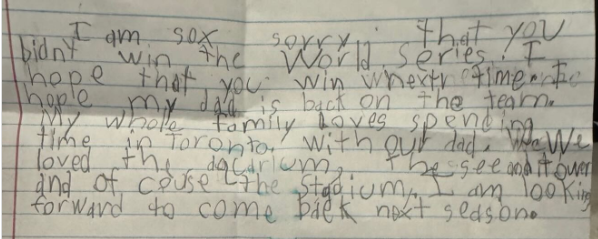 I am sox sorry that you
bidnt win the World series. I
hope that you win next time. I
hope my dad is back on the team.
My whole family loves spending
time in toronto. with our dad. We
loved the aquarium, the see and tower
and of couse the stadium, I am looking
forward to come back next season.